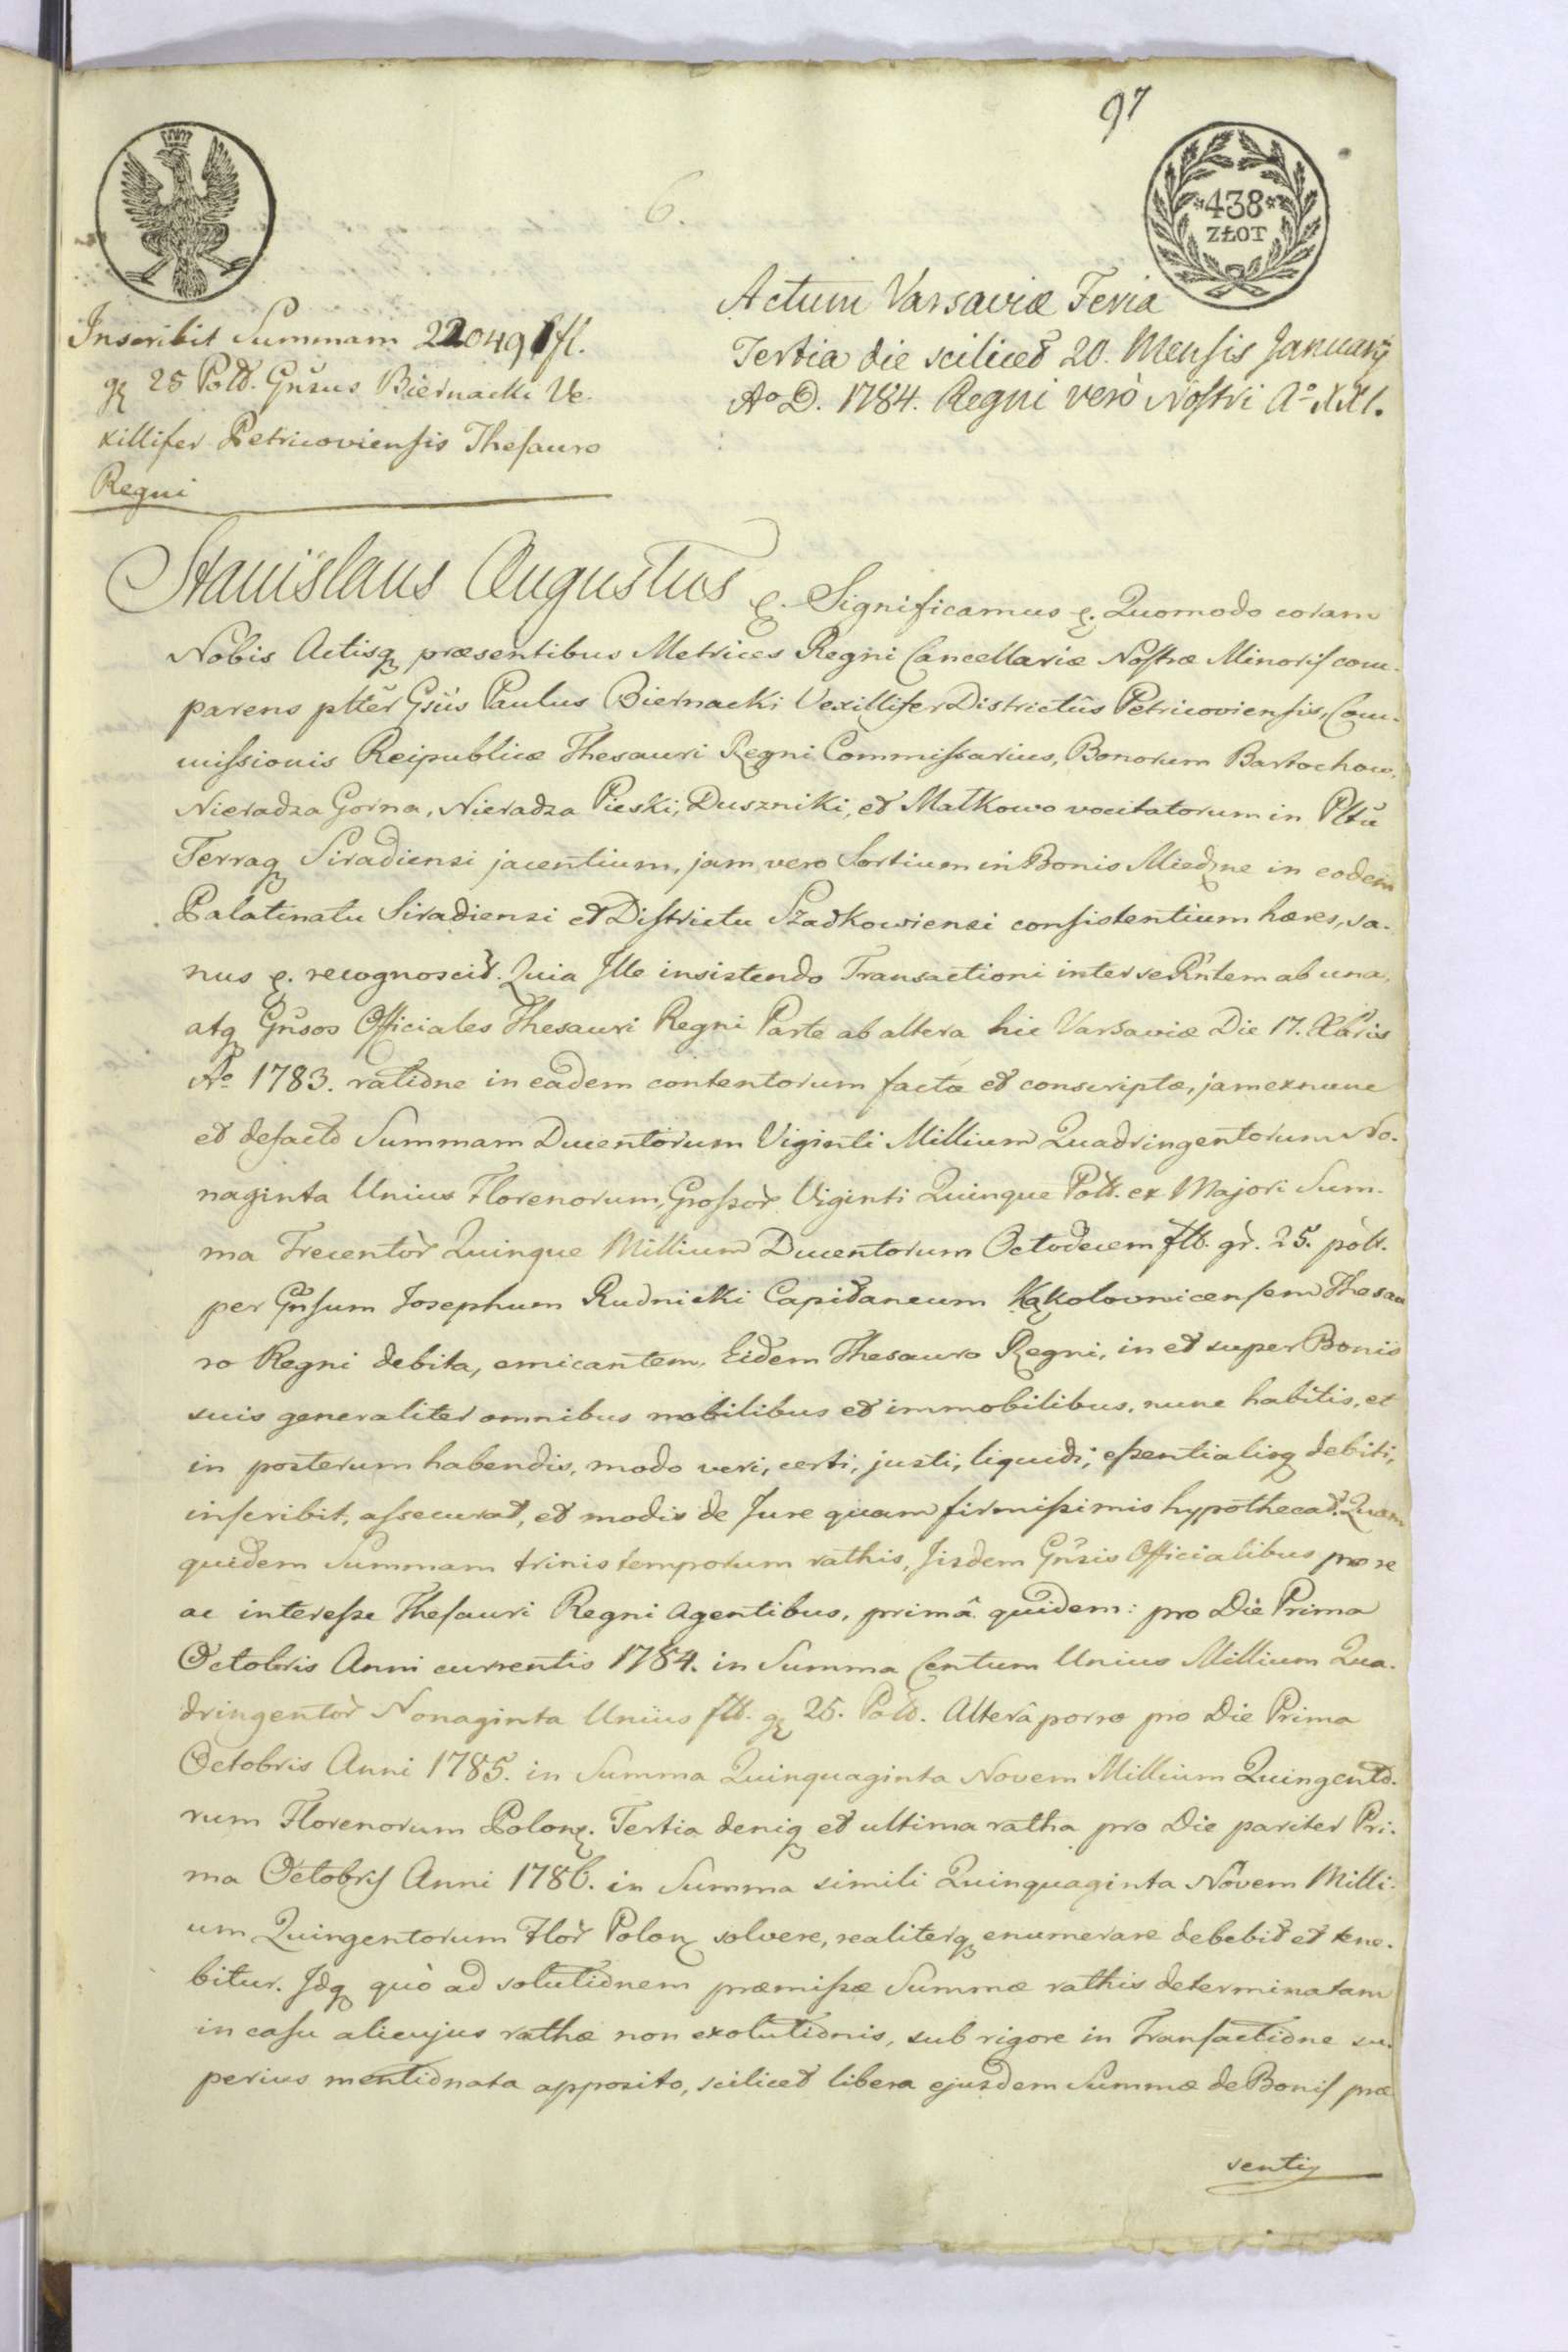 97
438
ZŁOT
6.
Inscribit Summam 220491 fl.
gr 25 Poll. Gnsus Biernacki Ve-
xillifer Petricoviensis Thesauro
Regni
Actum Varsaviæ Feria
Tertia die scilicet 20. Mensis January
Ao D. 1784. Regni vero Nostri Ao XXI.
Stanislaus Augustus &. Significamus &. Quomodo coram
Nobis Actisq præsentibus Metrices Regni Cancellariæ Nostræ Minoris com-
parens pltêr Gsus Paulus Biernacki Vexillifer Districtûs Petricoviensis, Com-
missionis Reipublicæ Thesauri Regni Commissarius, Bonorum Bartochow,
Nieradza Gorna, Nieradza Pieski, Duszniki, et Małkowo vocitatorum in Pltu
Terraq Siradiensi jacentium, jam vero Sortium in Bonis Miedzne in eodem
Palatinatu Siradiensi et Districtu Szadkowiensi consistentium hæres, sa-
nus &. recognoscit. Quia Ille insistendo Transactioni inter se Rntem ab una,
atq Gnsos Officiales Thesauri Regni Parte ab altera hic Varsaviæ Die 17. Xbris
Ao 1783. ratione in eadem contentorum factæ et conscriptæ, jam ex nunc
et defacto Summam Ducentorum Viginti Millium Quadringentorum No-
naginta Unius Florenorum, Grossor Viginti Quinque Poll. ex Majori Sum-
ma Trecentor Quinque Millium Ducentorum Octodecem fll. gr. 25. poll.
per Gnsum Josephum Rudnicki Capitaneum Kąkolovnicensem Thesau
ro Regni debita, emicantem, Eidem Thesauro Regni, in et super Bonis
suis generaliter omnibus mobilibus et immobilibus, nunc habitis, et
in posterum habendis, modo veri, certi, justi, liquidi, essentialisq debiti,
inscribit, assecurat, et modis de Jure quam firmissimis hypothecat. Quam
quidem Summam trinis temporum rathis, Iisdem Gnsis Officialibus pro re
ac interesse Thesauri Regni Agentibus, primâ quidem: pro Die Prima
Octobris Anni currentis 1784. in Summa Centum Unius Millium Qua-
dringentor Nonaginta Unius fll. gr 25. Poll. Alterâ porro pro Die Prima
Octobris Anni 1785. in Summa Quinquaginta Novem Millium Quingento-
rum Florenorum Polon. Tertia deniq et ultima ratha pro Die pariter Pri-
ma Octobris Anni 1786. in Summa simili Quinquaginta Novem Milli-
um Quingentorum Flor Polon solvere, realiterq enumerare debebit et tene-
bitur. Idq quò ad solutionem præmissæ Summæ rathis determinatam
in casu alicujus rathæ non exolutionis, sub rigore in Transactione su-
perius mentionata apposito, scilicet libera ejusdem Summæ de Bonis præ
sentis